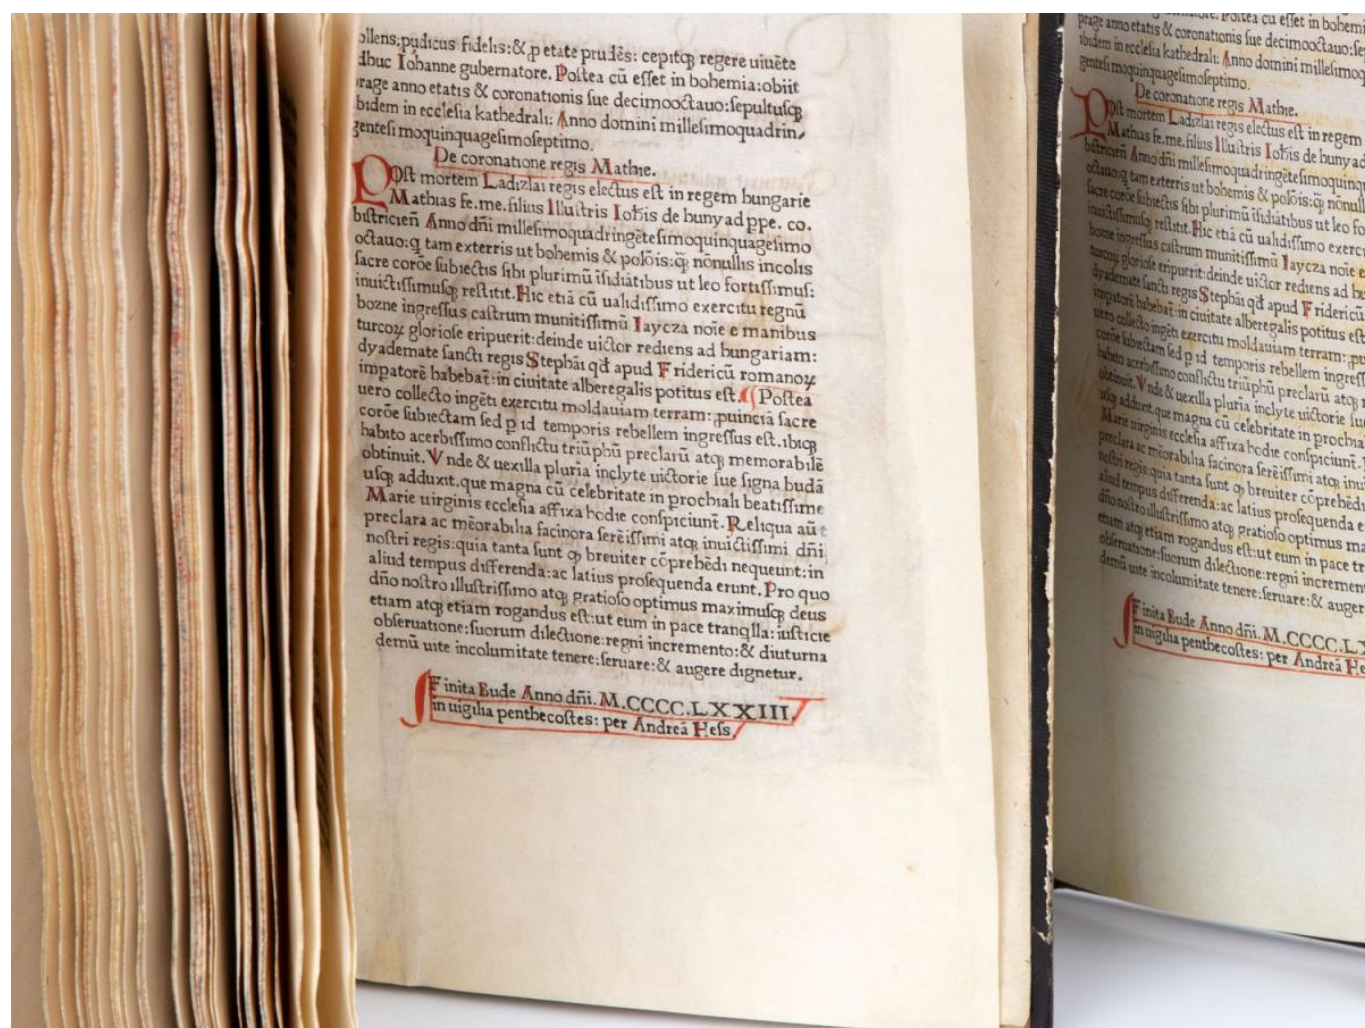 ollens: pudicus fidelis: & p etate prudēs: cepitqꝫ regere uiuēte
dhuc Iohanne gubernatore. Postea cū esset in bohemia: obiit
rage anno etatis & coronationis sue decimooctauo: sepultusqꝫ
bidem in ecclesia kathedrali: Anno domini millesimoquadrin,
gentesi moquinquagesimoseptimo.
De coronatione regis Mathie.
POst mortem Ladizlai regis electus est in regem hungarie
Mathias fe. me. filius Illustris Iohis de huny ad ppe. co.
bistricień Anno dñi millesimoquadringētesimoquinquagesimo
octauo: q tam exterris ut bohemis & polōis: qꝫ nōnullis incolis
sacre corōe subiectis sibi plurimū īsidiātibus ut leo fortissimus:
inuictissimusqꝫ restitit. Hic etiā cū ualidissimo exercitu regnū
bozne ingressus castrum munitissimū Iaycza noīe e manibus
turcoꝝ gloriose eripuerit: deinde uictor rediens ad hungariam:
dyademate sancti regis Stephāi qđ apud Fridericū romanoꝝ
impatorē habebat̄: in ciuitate alberegalis potitus est. ¶ Postea
uero collecto ingēti exercitu moldauiam terram: ꝓuinciā sacre
corōe subiectam sed p id temporis rebellem ingressus est. ibiqꝫ
habito acerbissimo conflictu triūphū preclarū atqꝫ memorabilē
obtinuit. Vnde & uexilla pluria inclyte uictorie sue signa budā
usqꝫ adduxit. que magna cū celebritate in prochiali beatissime
Marie uirginis ecclesia affixa hodie conspiciunt̄. Reliqua aūt
preclara ac mēorabilia facinora serēissimi atqꝫ inuictissimi dñi
nostri regis: quia tanta sunt ꝙ breuiter cōprehēdi nequeunt: in
aliud tempus differenda: ac latius prosequenda erunt. Pro quo
dño nostro illustrissimo atqꝫ gratioso optimus maximusqꝫ deus
etiam atqꝫ etiam rogandus est: ut eum in pace tranqlla: iusticie
obseruatione: suorum dilectione: regni incremento: & diuturna
demū uite incolumitate tenere: seruare: & augere dignetur.
Finita Bude Anno dñi. M.CCCC.LXXIII.
in uigilia penthecostes: per Andreā Hess.
prage anno etatis & coronationis sue decimooctauo: se
ibidem in ecclesia kathedrali: Anno domini millesimoq
gentesi moquinquagesimoseptimo.
De coronatione regis Mathie.
POst mortem Ladizlai regis electus est in regem
Mathias fe. me. filius Illustris Iohis de huny ad
bistricień Anno dñi millesimoquadringētesimoquinq
octauo: q tam exterris ut bohemis & polōis: qꝫ nōnull
sacre corōe subiectis sibi plurimū īsidiātibus ut leo fo
inuictissimusqꝫ restitit. Hic etiā cū ualidissimo exerc
bozne ingressus castrum munitissimū Iaycza noīe e
turcoꝝ gloriose eripuerit: deinde uictor rediens ad hu
dyademate sancti regis Stephāi qđ apud Fridericū
impatorē habebat̄: in ciuitate alberegalis potitus est
uero collecto ingēti exercitu moldauiam terram: ꝓu
corōe subiectam sed p id temporis rebellem ingress
habito acerbissimo conflictu triūphū preclarū atqꝫ
obtinuit. Vnde & uexilla pluria inclyte uictorie sue
usqꝫ adduxit. que magna cū celebritate in prochia
Marie uirginis ecclesia affixa hodie conspiciunt̄.
preclara ac mēorabilia facinora serēissimi atqꝫ inui
nostri regis: quia tanta sunt ꝙ breuiter cōprehēdi
aliud tempus differenda: ac latius prosequenda e
dño nostro illustrissimo atqꝫ gratioso optimus ma
etiam atqꝫ etiam rogandus est: ut eum in pace tr
obseruatione: suorum dilectione: regni incremen
demū uite incolumitate tenere: seruare: & auger
Finita Bude Anno dñi. M.CCCC.LX
in uigilia penthecostes: per Andreā He